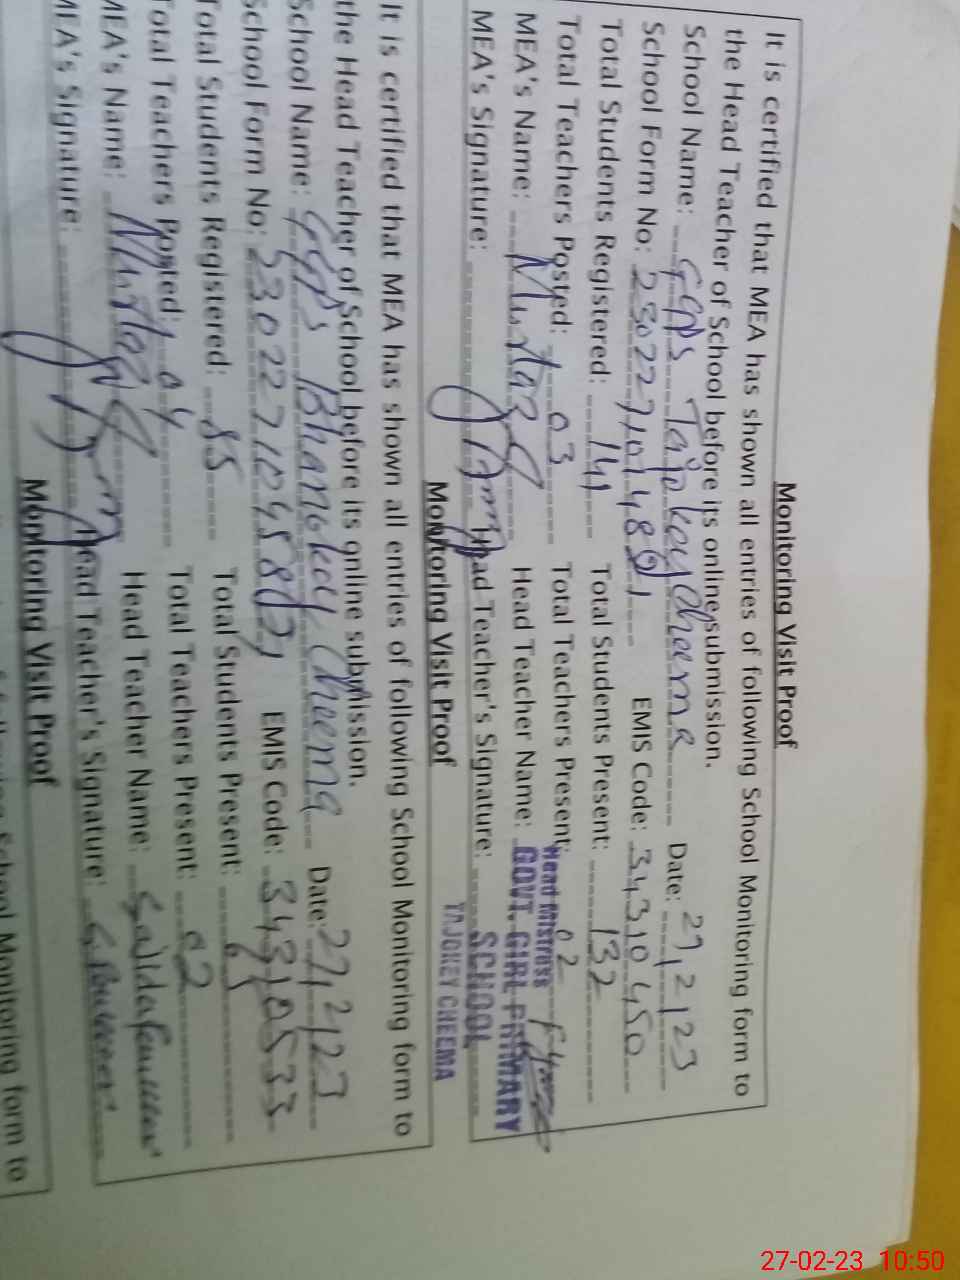 Monitoring Visit Proof
It is certified that MEA has shown all entries of following School Monitoring form to
the Head Teacher of School before its online submission.
School Name: GGPS Tajokey Cheema Date: 27/2/23
School Form No: EMIS Code: 34310450
Total Students Registered: 141 Total Students Present: 132
Total Teachers Posted: 03 Total Teachers Present: 02
MEA's Name: Mumtaz Head Teacher Name:
MEA's Signature: Head Teacher's Signature:
Head Mistress
GOVT. GIRL PRIMARY
SCHOOL
TAJOKEY CHEEMA
Monitoring Visit Proof
It is certified that MEA has shown all entries of following School Monitoring form to
the Head Teacher of School before its online submission.
School Name: GGPS Bhanokey Cheema Date: 27/2/23
School Form No: EMIS Code: 34310533
Total Students Registered: 85 Total Students Present: 65
Total Teachers Posted: 04 Total Teachers Present: 02
MEA's Name: Mumtaz Head Teacher Name:
MEA's Signature: Head Teacher's Signature:
Monitoring Visit Proof
School Monitoring form to
27-02-23 10:50